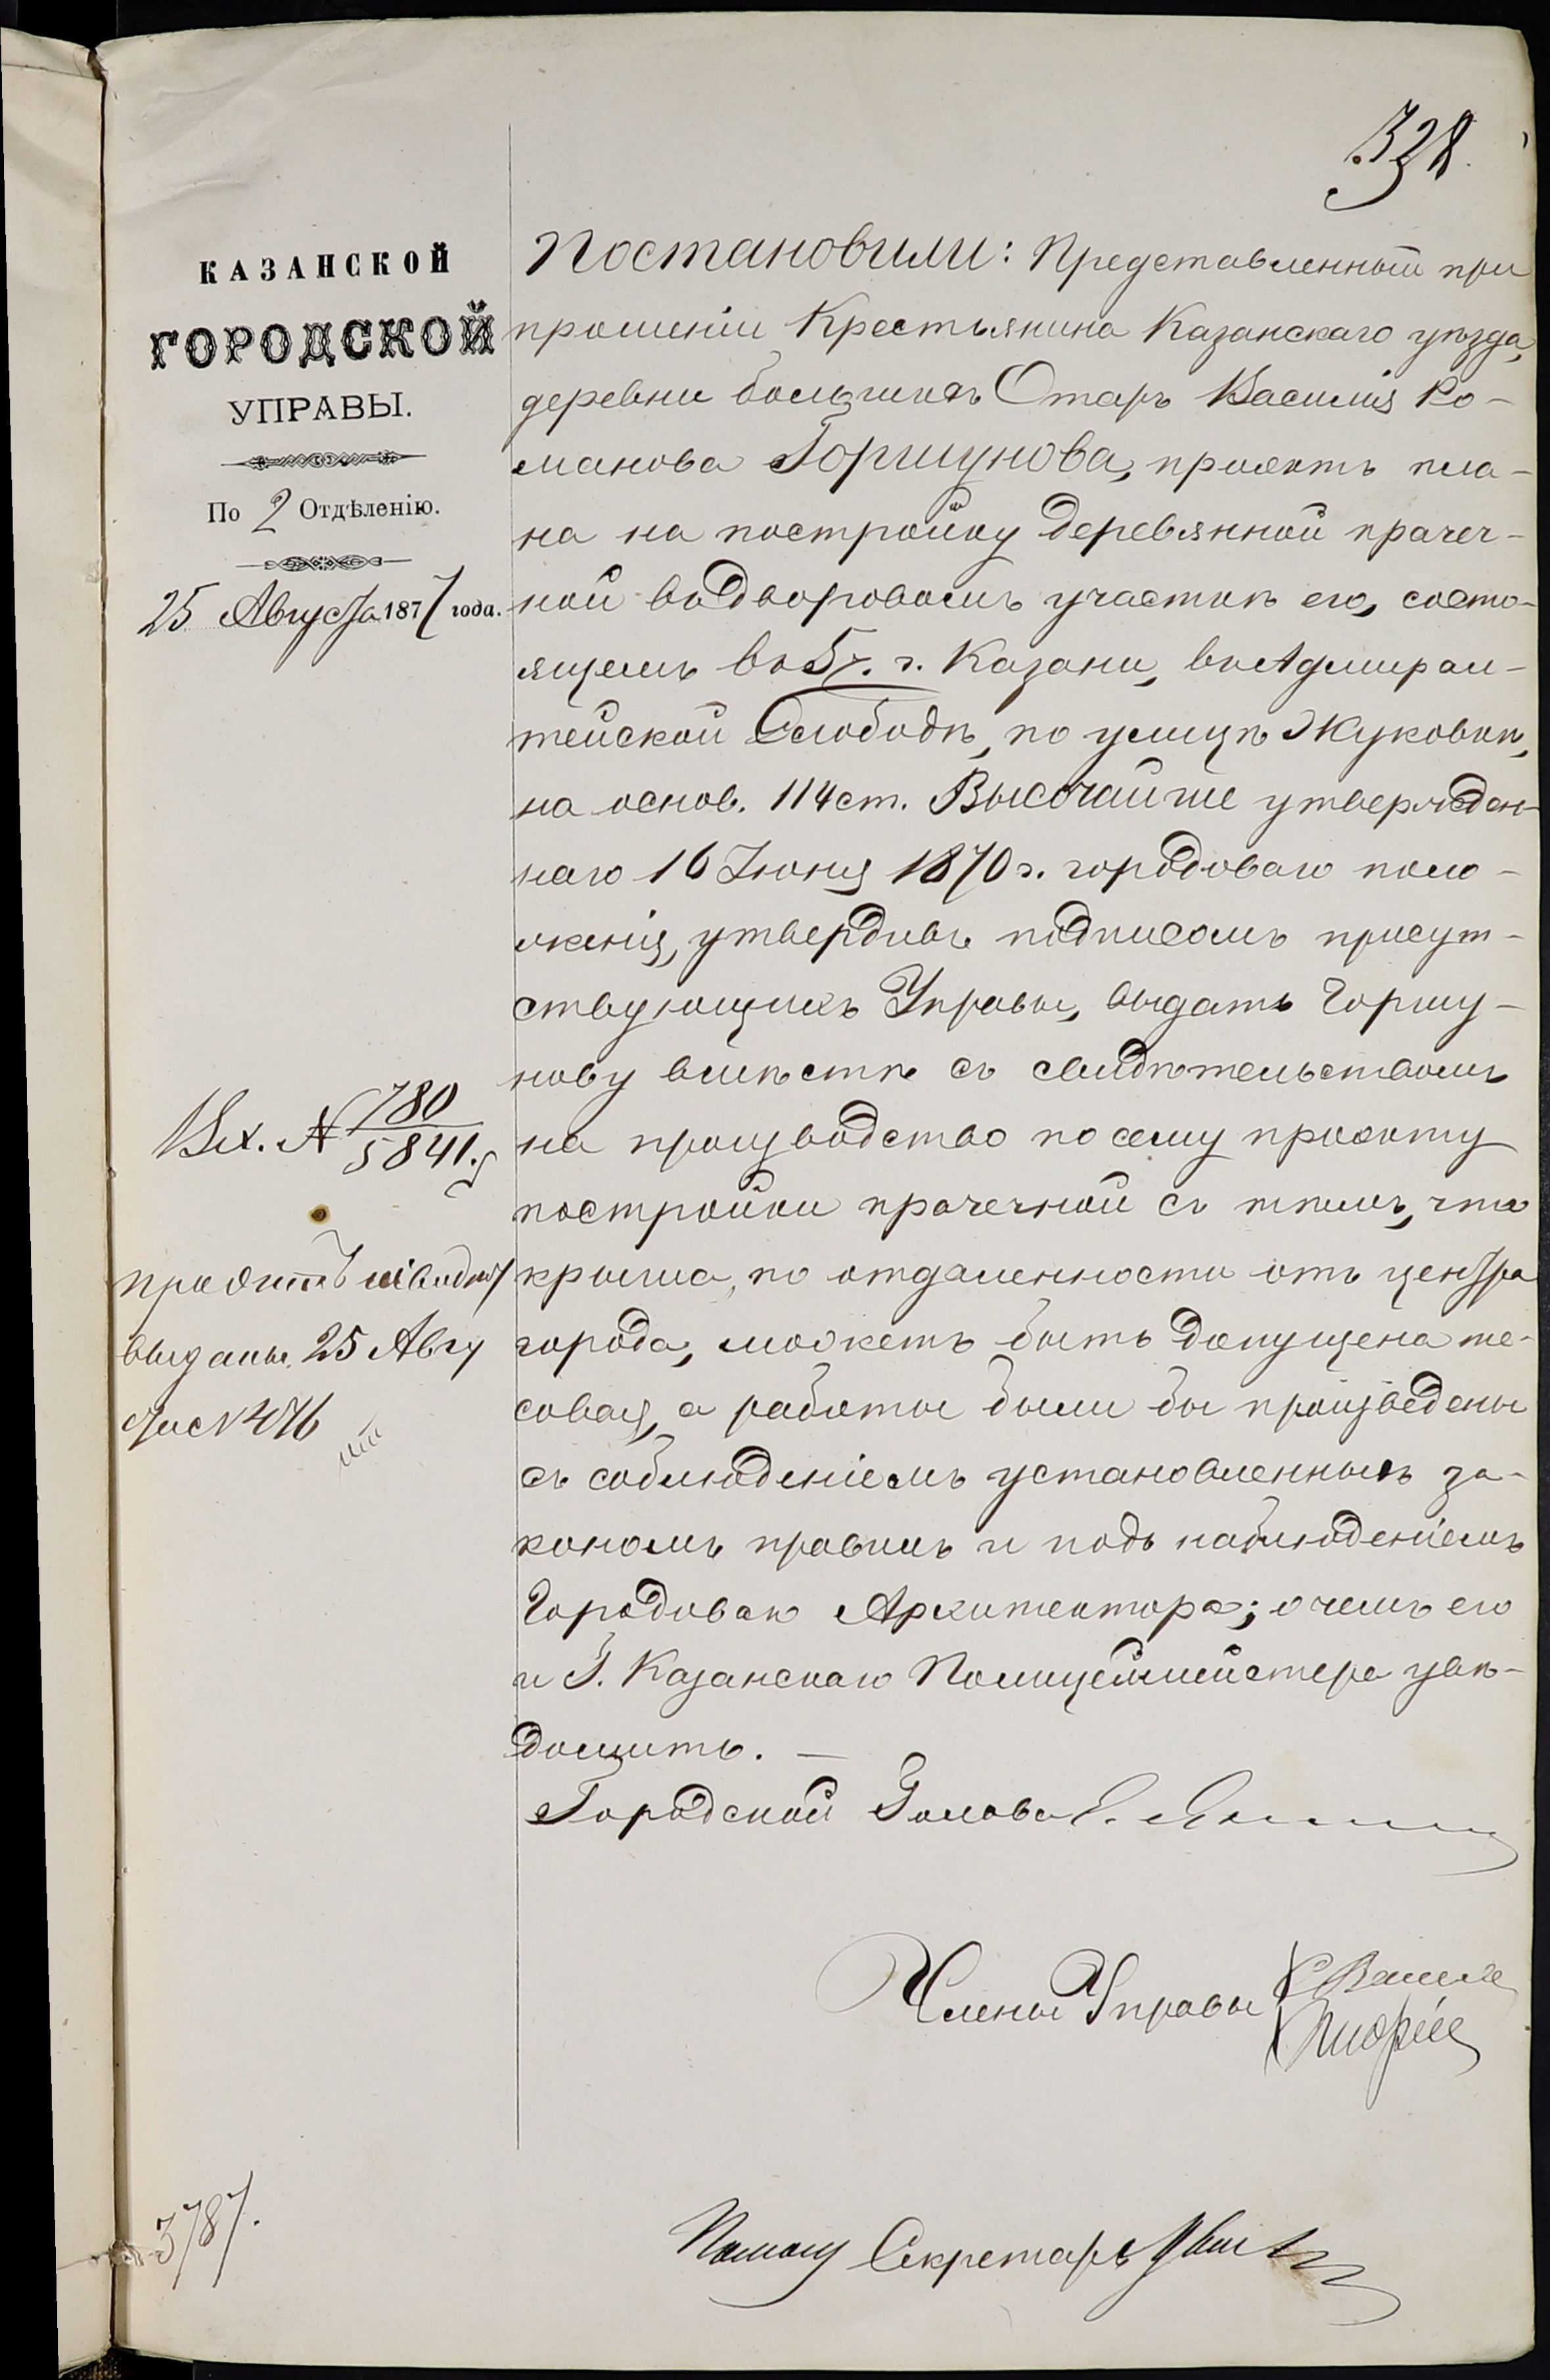 328.
КАЗАНСКОЙ
ГОРОДСКОЙ
УПРАВЫ.
По 2 Отдѣленію.
25 Августа 1877 года.
Вх. № 780
5841.
выданы 25 Авгу
3787.
Постановили: Представленный при
прошеніи Крестьянина Казанскаго уѣзда,
деревни большихъ Отаръ Василія Ро-
манова Горшунова, проектъ пла-
на на постройку деревянной прачеч-
ной въ дворовомъ участкѣ его, состо-
ящемъ въ 5 ч. г. Казани, въ Адмирал-
тейской Слободѣ, по улицѣ Жуковкѣ,
на основ. 114 ст. Высочайше утвержден-
наго 16 Іюня 1870 г. городоваго поло-
женія, утвердивъ подписомъ присут-
ствующихъ Управы, выдать Горшу-
нову вмѣстѣ съ свидѣтельствомъ
на производство по сему проекту
постройки прачечной съ тѣмъ, что
крыша, по отдаленности отъ центра
города, можетъ быть допущена те-
совая, а работы были бы произведены
съ соблюденіемъ установленныхъ за-
кономъ правилъ и подъ наблюденіемъ
Городоваго Архитектора; о чемъ его
и Г. Казанскаго Полицеймейстера увѣ-
домить. —
Городской Голова
Члены Управы
Помощ Секретарь